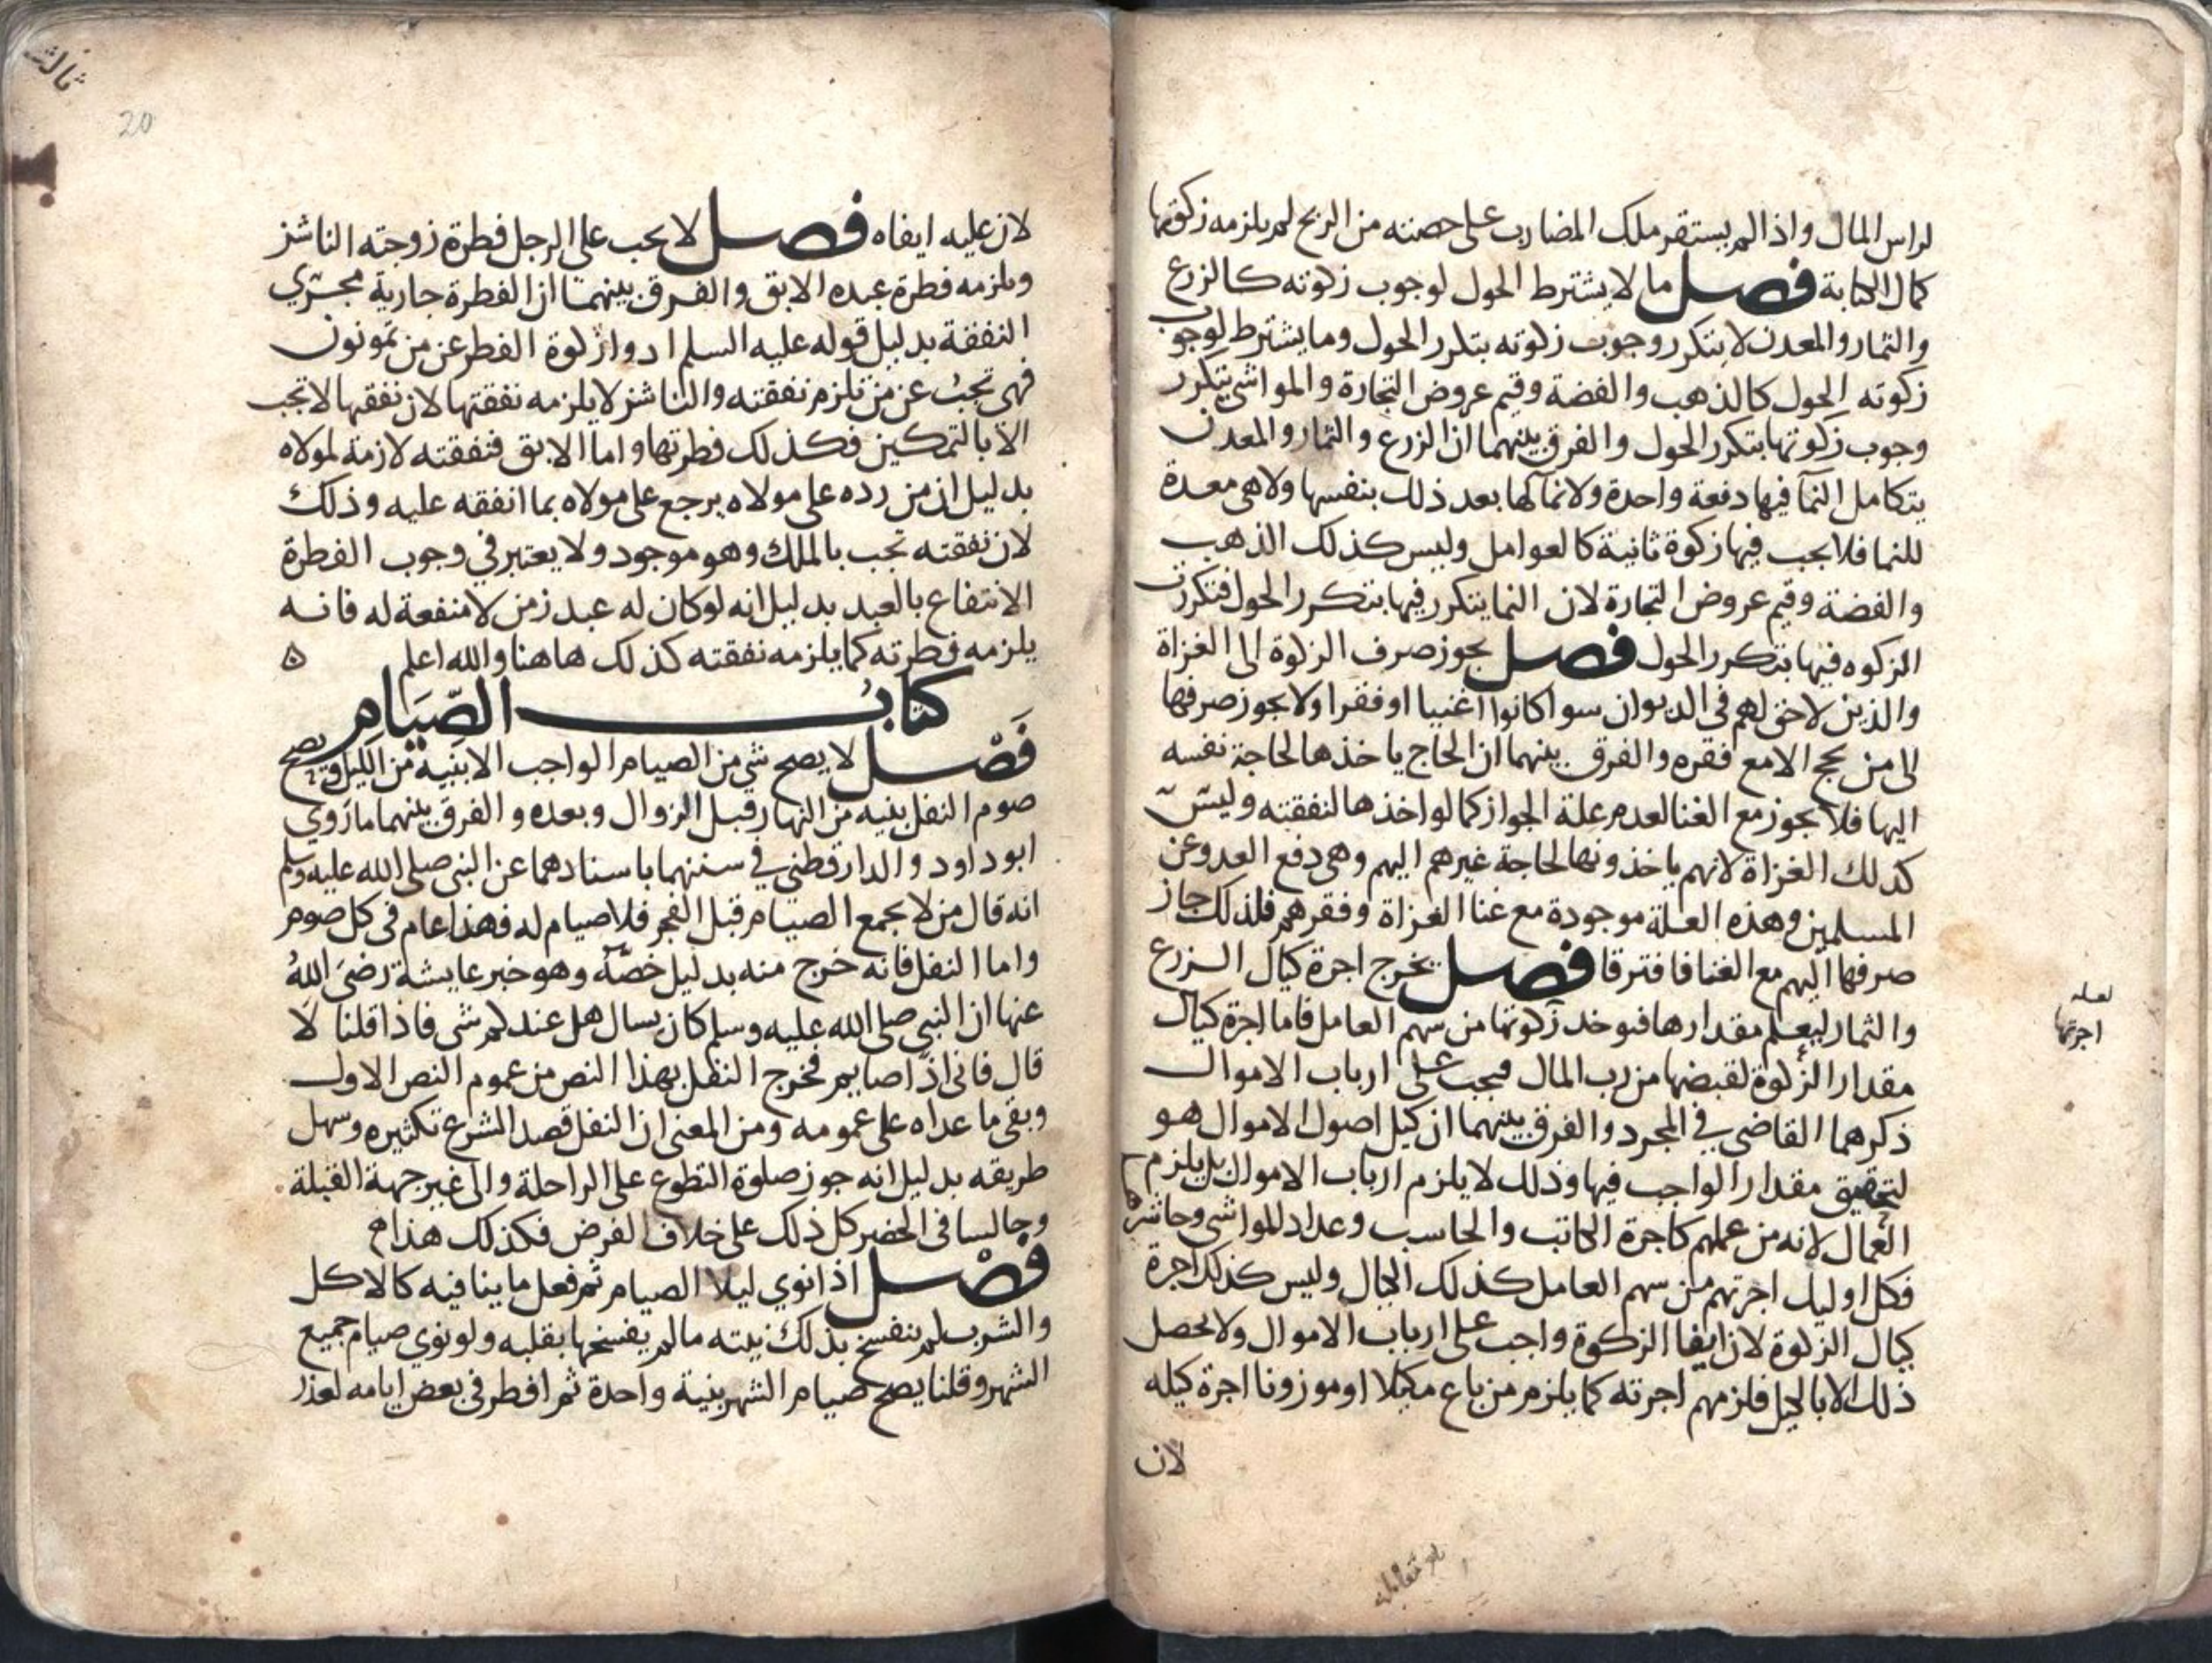 لراس المال واذا لم يستقر ملك المضارب على حصته من الربح لم يلزمه زكوتها
كمال الكتابة فصل ما لا يشترط الحول لوجوب زكوته كالزرع
والثمار والمعدن لا يتكرر وجوب زكوته بتكرر الحول وما يشترط لوجوب
زكوته الحول كالذهب والفضة وقيم عروض التجارة والمواشي يتكرر
وجوب زكوتها بتكرر الحول والفرق بينهما ان الزرع والثمار والمعدن
يتكامل النمآ فيها دفعة واحدة ولا نمآ لها بعد ذلك بنفسها ولا هي معدة
للنما فلا يجب فيها زكوة ثانية كالعوامل وليس كذلك الذهب
والفضة وقيم عروض التجارة لان النما يتكرر فيها بتكرر الحول فتكررت
الزكوه فيها بتكرر الحول فصل يجوز صرف الزكوة الى الغزاة
والذين لا حق لهم في الديوان سوا كانوا اغنيا او فقرا ولا يجوز صرفها
الى من يحج الا مع فقره والفرق بينهما ان الحاج ياخذها لحاجة نفسه
اليها فلا يجوز مع الغنا لعدم علة الجواز كما لو اخذها لنفقته وليس
كذلك الغزاة لانهم ياخذونها لحاجة غيرهم اليهم وهى دفع العدو عن
المسلمين وهذه العلة موجودة مع غنا الغزاة وفقرهم فلذلك جاز
صرفها اليهم مع الغنا فافترقا فصل يخرج اجرة كيال الزرع
والثمار ليعلم مقدارها فيوخد زكوتها من سهم العامل فاما اجرة كيال
مقدار الزكوة لقبضها من رب المال فيجب على ارباب الاموال
ذكرهما القاضي في المجرد والفرق بينهما ان كيل اصول الاموال هو
لتحقيق مقدار الواجب فيها وذلك لا يلزم ارباب الاموال بل يلزم
العمال لانه من عملهم كاجرة الكاتب والحاسب وعداد المواشي وحاشرها
فكل اوليك اجرتهم من سهم العامل كذلك الكيال وليس كذلك اجرة
كيال الزكوة لان ايفا الزكوة واجب على ارباب الاموال ولا يحصل
ذلك الا بالكيل فلزمهم اجرته كما يلزم من باع مكيلا او موزونا اجرة كيله
لان
لعله
اجرتها
ثالث
20
لان عليه ايفاه فصل لا يجب على الرجل فطرة زوجته الناشز
ويلزمه فطرة عبده الابق والفرق بينهما ان الفطرة جارية مجرى
النفقة بدليل قوله عليه السلم ادوا زكوة الفطر عن من تمونون
فهى تجب عن من تلزم نفقته والناشز لا يلزمه نفقتها لان نفقها لا تجب
الا بالتمكين فكذلك فطرتها واما الابق فنفقته لازمة لمولاه
بدليل ان من رده على مولاه يرجع على مولاه بما انفقه عليه وذلك
لان نفقته تجب بالملك وهو موجود ولا يعتبر في وجوب الفطرة
الانتفاع بالعبد بدليل انه لو كان له عبد زمن لا منفعة له فانه
يلزمه فطرته كما يلزمه نفقته كذلك هاهنا والله اعلم ه
كتاب الصيام
فصل لا يصح شي من الصيام الواجب الا بنية من الليل ويصح
صوم النفل بنيه من النهار قبل الزوال وبعده والفرق بينهما ما روي
ابو داود والدارقطني في سننهما باسنادهما عن النبي صلى الله عليه وسلم
انه قال من لا يجمع الصيام قبل الفجر فلا صيام له فهذا عام في كل صوم
واما النفل فانه خرج منه بدليل خصه وهو خبر عايشة رضي الله
عنها ان النبي صلى الله عليه وسلم كان يسال هل عندكم شى فاذا قلنا لا
قال فانى اذا صايم فخرج النفل بهذا النص من عموم النص الاول
وبقى ما عداه على عمومه ومن المعنى ان النفل قصد الشرع تكثيره وسهل
طريقه بدليل انه جوز صلوة التطوع على الراحلة والى غير جهة القبلة
وجالسا في الحضر كل ذلك على خلاف الفرض فكذلك هذا
فصل اذا نوي ليلا الصيام ثم فعل ما ينافيه كالاكل
والشرب لم ينفسخ بذلك نيته ما لم يفسخها بقلبه ولو نوي صيام جميع
الشهر وقلنا يصح صيام الشهر بنية واحدة ثم افطر في بعض ايامه لعذر